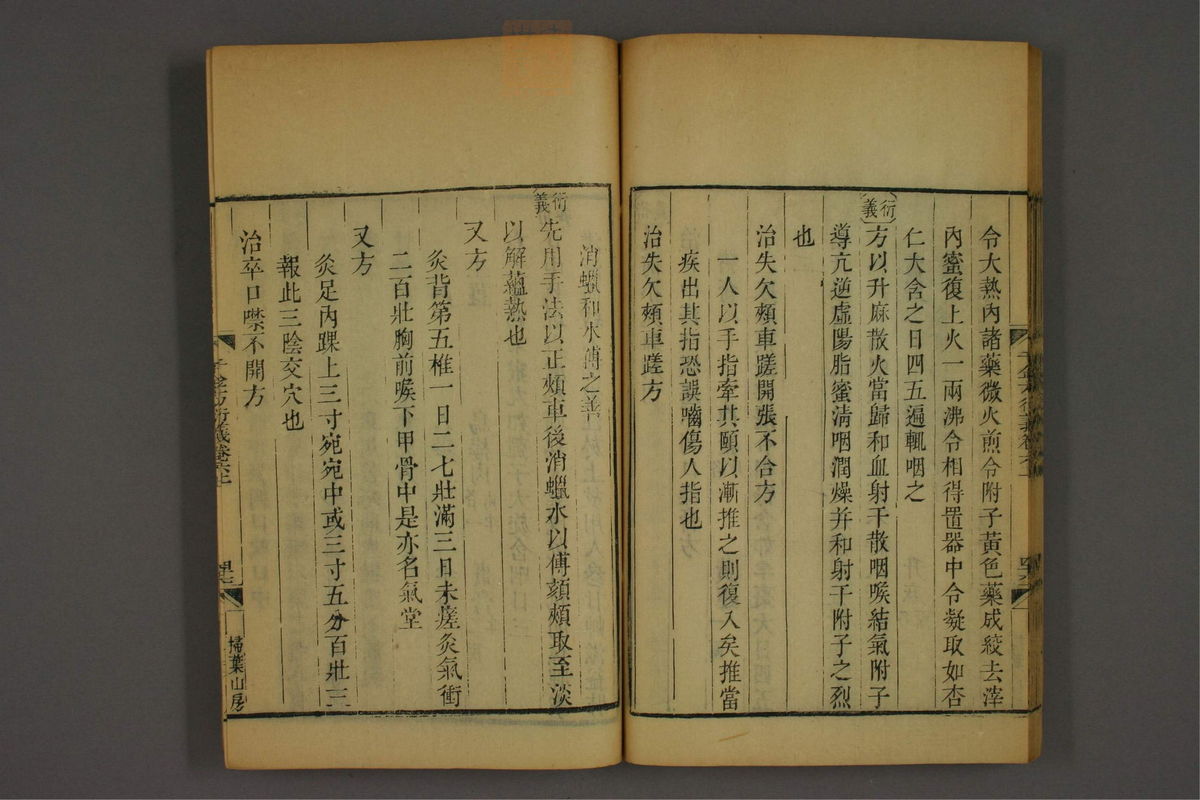 令大熱內諸藥微火煎令附子黃色藥成絞去滓
內蜜復上火一兩沸令相得置器中令凝取如杏
仁大含之日四五遍輒咽之
衍義
方以升麻散火當歸和血射干散咽喉結氣附子
導亢逆虛陽脂蜜清咽潤燥并和射干附子之烈
也
治失欠頰車蹉開張不合方
一人以手指牽其頤以漸推之則復入矣推當
疾出其指恐誤嚙傷人指也
治失欠頰車蹉方
消蠟和水傅之善
衍義
先用手法以正頰車後消蠟水以傅頦頰取至淡
以解蘊熱也
又方
灸背第五椎一日二七壯滿三日未瘥灸氣衝
二百壯胸前喉下甲骨中是亦名氣堂
又方
灸足內踝上三寸宛宛中或三寸五分百壯三
報此三陰交穴也
治卒口噤不開方
千金方衍義卷六上
掃葉山房